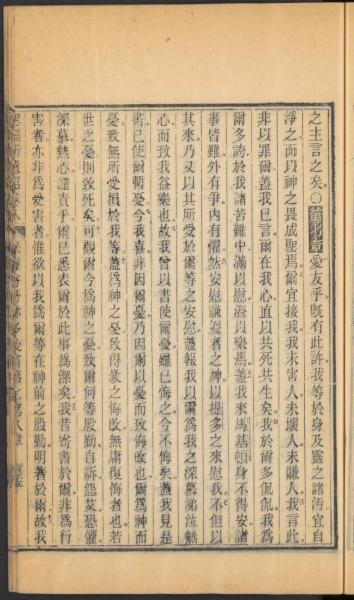 之主言之矣○第七章愛友乎旣有此許我等於身及靈之諸污宜自
淨之而以神之畏成聖焉爾宜接我我未害人未壞人未賺人我言此
非以罪爾蓋我已言爾在我心直以共死共生矣我於爾多侃侃我爲
爾多誇於我諸苦難中滿以慰溢以樂焉蓋我來馬基頓身不得安諸
事皆難外有爭內有懼然安慰謙遜者之神以提多之來慰我不但以
其來乃又以其所受於爾等之安慰蓋報我以爾爲我之深慕涕泣熱
心而致我益樂也故我曾以書使爾憂雖已悔之今不悔矣蓋我見是
書已使爾暫憂今我喜非因爾憂乃因爾以憂而致悔改也爾爲神而
憂致無所受損於我等蓋爲神之憂致得救之悔改無庸復悔者也若
世之憂則致死矣可觀爾今爲神之憂致爾何等殷勤自訴怨芺恐懼
深慕熱心譴責乎爾已悉表爾於此事爲潔矣我昔寄書於爾非爲行
害者亦非爲受害者惟欲以我爲爾等在神前之殷勤明著於爾故我